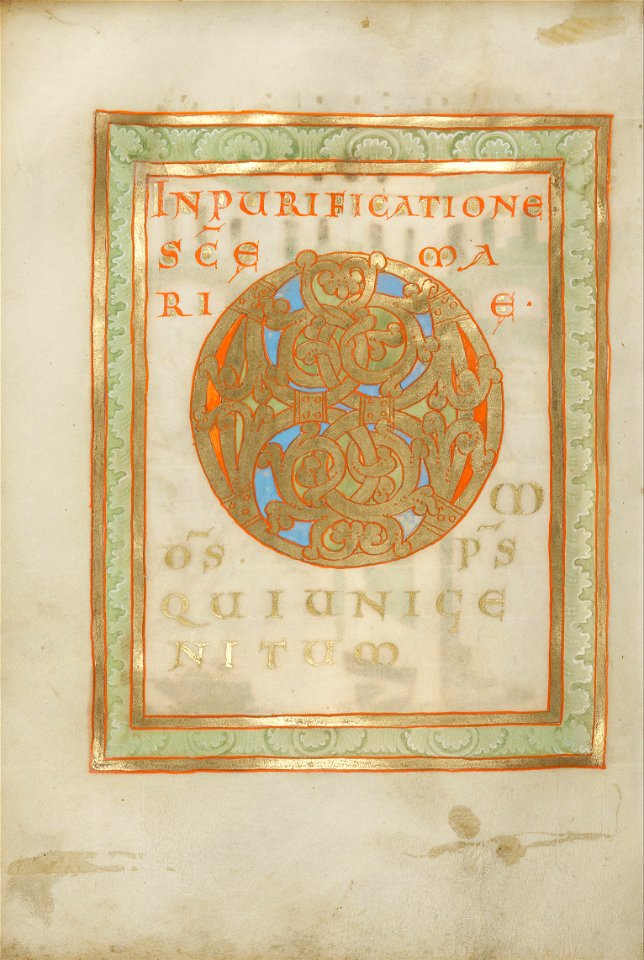 INPURIFICATIONE
SC̄E MA
RI E·
O M
OS̄. PS̄
QUI UNIGE
NITUM